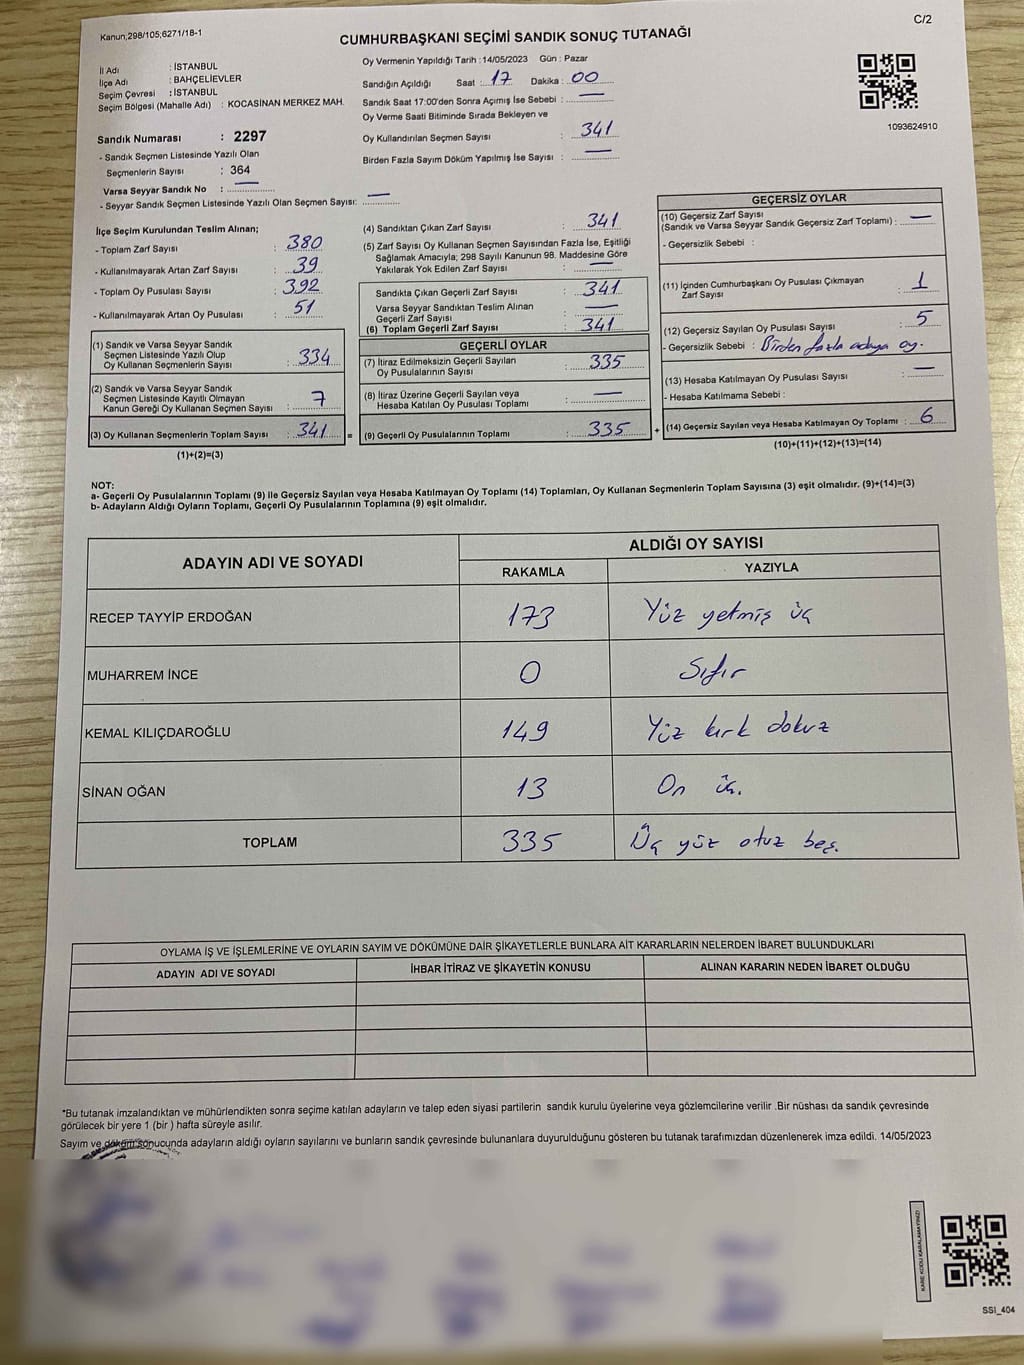 C/2
Kanun,298/105;6271/18-1
CUMHURBAŞKANI SEÇİMİ SANDIK SONUÇ TUTANAĞI
İl Adı : İSTANBUL
İlçe Adı : BAHÇELİEVLER
Seçim Çevresi : İSTANBUL
Seçim Bölgesi (Mahalle Adı) : KOCASİNAN MERKEZ MAH.
Sandık Numarası : 2297
- Sandık Seçmen Listesinde Yazılı Olan
Seçmenlerin Sayısı : 364
Varsa Seyyar Sandık No : —
- Seyyar Sandık Seçmen Listesinde Yazılı Olan Seçmen Sayısı: —
Oy Vermenin Yapıldığı Tarih :14/05/2023 Gün : Pazar
Sandığın Açıldığı Saat : 17 Dakika : 00
Sandık Saat 17:00'den Sonra Açımış İse Sebebi : —
Oy Verme Saati Bitiminde Sırada Bekleyen ve
Oy Kullandırılan Seçmen Sayısı : 341
Birden Fazla Sayım Döküm Yapılmış İse Sayısı : —
1093624910
İlçe Seçim Kurulundan Teslim Alınan;
- Toplam Zarf Sayısı : 380
- Kullanılmayarak Artan Zarf Sayısı : 39
- Toplam Oy Pusulası Sayısı : 392
- Kullanılmayarak Artan Oy Pusulası : 51
(1) Sandık ve Varsa Seyyar Sandık
Seçmen Listesinde Yazılı Olup
Oy Kullanan Seçmenlerin Sayısı : 334
(2) Sandık ve Varsa Seyyar Sandık
Seçmen Listesinde Kayıtlı Olmayan
Kanun Gereği Oy Kullanan Seçmen Sayısı : 7
(3) Oy Kullanan Seçmenlerin Toplam Sayısı : 341 =
(1)+(2)=(3)
(4) Sandıktan Çıkan Zarf Sayısı : 341
(5) Zarf Sayısı Oy Kullanan Seçmen Sayısından Fazla İse, Eşitliği
Sağlamak Amacıyla; 298 Sayılı Kanunun 98. Maddesine Göre
Yakılarak Yok Edilen Zarf Sayısı : —
Sandıkta Çıkan Geçerli Zarf Sayısı : 341
Varsa Seyyar Sandıktan Teslim Alınan
Geçerli Zarf Sayısı : —
(6) Toplam Geçerli Zarf Sayısı : 341
GEÇERLİ OYLAR
(7) İtiraz Edilmeksizin Geçerli Sayılan
Oy Pusulalarının Sayısı : 335
(8) İtiraz Üzerine Geçerli Sayılan veya
Hesaba Katılan Oy Pusulası Toplamı : —
(9) Geçerli Oy Pusulalarının Toplamı : 335 +
GEÇERSİZ OYLAR
(10) Geçersiz Zarf Sayısı
(Sandık ve Varsa Seyyar Sandık Geçersiz Zarf Toplamı) : —
- Geçersizlik Sebebi :
(11) İçinden Cumhurbaşkanı Oy Pusulası Çıkmayan
Zarf Sayısı : 1
(12) Geçersiz Sayılan Oy Pusulası Sayısı : 5
- Geçersizlik Sebebi : Birden fazla adaya oy.
(13) Hesaba Katılmayan Oy Pusulası Sayısı : —
- Hesaba Katılmama Sebebi :
(14) Geçersiz Sayılan veya Hesaba Katılmayan Oy Toplamı : 6
(10)+(11)+(12)+(13)=(14)
NOT:
a- Geçerli Oy Pusulalarının Toplamı (9) ile Geçersiz Sayılan veya Hesaba Katılmayan Oy Toplamı (14) Toplamları, Oy Kullanan Seçmenlerin Toplam Sayısına (3) eşit olmalıdır. (9)+(14)=(3)
b- Adayların Aldığı Oyların Toplamı, Geçerli Oy Pusulalarının Toplamına (9) eşit olmalıdır.
ADAYIN ADI VE SOYADI ALDIĞI OY SAYISI
RAKAMLA YAZIYLA
RECEP TAYYİP ERDOĞAN 173 Yüz yetmiş üç
MUHARREM İNCE 0 Sıfır
KEMAL KILIÇDAROĞLU 149 Yüz kırk dokuz
SİNAN OĞAN 13 On üç.
TOPLAM 335 Üç yüz otuz beş.
OYLAMA İŞ VE İŞLEMLERİNE VE OYLARIN SAYIM VE DÖKÜMÜNE DAİR ŞİKAYETLERLE BUNLARA AİT KARARLARIN NELERDEN İBARET BULUNDUKLARI
ADAYIN ADI VE SOYADI İHBAR İTİRAZ VE ŞİKAYETİN KONUSU ALINAN KARARIN NEDEN İBARET OLDUĞU
*Bu tutanak imzalandıktan ve mühürlendikten sonra seçime katılan adayların ve talep eden siyasi partilerin sandık kurulu üyelerine veya gözlemcilerine verilir .Bir nüshası da sandık çevresinde
görülecek bir yere 1 (bir ) hafta süreyle asılır.
Sayım ve döküm sonucunda adayların aldığı oyların sayılarını ve bunların sandık çevresinde bulunanlara duyurulduğunu gösteren bu tutanak tarafımızdan düzenlenerek imza edildi. 14/05/2023
KARE KODU KARALAMAYINIZ!
SSI_404